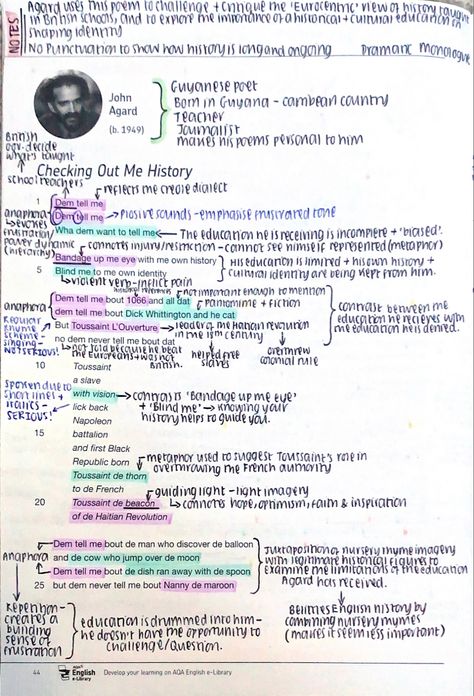 Agard uses this poem to challenge + critique the 'Eurocentric' view of history taught
in British schools, and to explore the importance of a historical + cultural education in
shaping identity
NOTES
No Punctuation to show how history is long and ongoing
Dramatic monologue
John
Agard
(b. 1949)
Guyanese poet
Born in Guyana - carribean country
Teacher
Journalist
makes his poems personal to him
British
gov. decide
what's taught
Checking Out Me History
school teachers
reflects me creole dialect
1 Dem tell me
anaphora
Dem tell me
plosive sounds - emphasise frustrated tone
evokes
frustration/
power dynamic
(hierarchy)
Wha dem want to tell me
The education he is receiving is incomplete + 'biased'.
connotes injury/restriction - cannot see himself represented (metaphor)
Bandage up me eye with me own history
His education is limited + his own history +
cultural identity are being kept from him.
5 Blind me to me own identity
violent verb - inflict pain
historical references
not important enough to mention
Dem tell me bout 1066 and all dat
pantomime + fiction
anaphora
dem tell me bout Dick Whittington and he cat
contrast between me
education he recieves with
me education he is denied.
Regular
rhyme
scheme -
singing -
NOT SERIOUS!
But Toussaint L'Ouverture
leader of me Haitian revolution
in the 18th century
no dem never tell me bout dat
not told because he beat
me Europeans + was not
British.
helped free
slaves
overthrew
colonial rule
10 Toussaint
a slave
spoken due to
short lines +
italics -
SERIOUS!
with vision
contrasts 'Bandage up me eye'
+ 'Blind me' → knowing your
history helps to guide you.
lick back
Napoleon
15 battalion
and first Black
Republic born
metaphor used to suggest Toussaint's role in
overthrowing the French authority
Toussaint de thorn
to de French
guiding light - light imagery
20 Toussaint de beacon
connotes hope, optimism, faith & inspiration
of de Haitian Revolution
Dem tell me bout de man who discover de balloon
and de cow who jump over de moon
Anaphora
Dem tell me bout de dish ran away with de spoon
25 but dem never tell me bout Nanny de maroon
Juxtaposition of nursery rhyme imagery
with legitimate historical figures to
examine me limitations of the education
Agard has received.
Repetition -
creates a
building
sense of
frustration
education is drummed into him -
he doesn't have me opportunity to
challenge/question.
Belittles English history by
combining nursery rhymes
(makes it seem less important)
44
AQA
English
e-Library
Develop your learning on AQA English e-Library